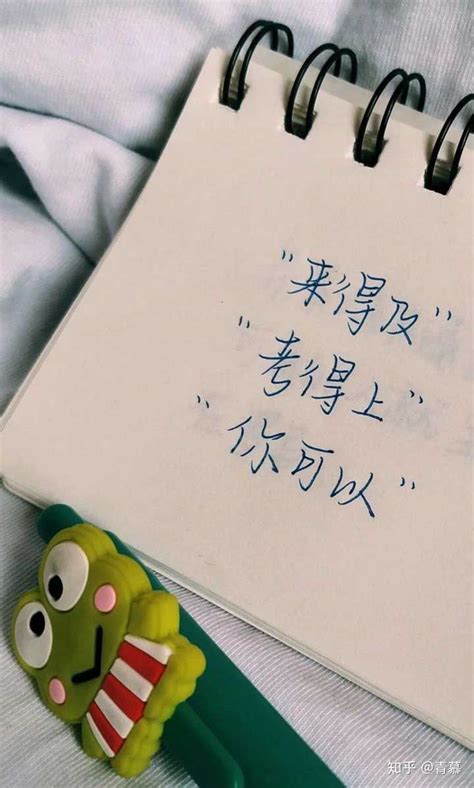 "来得及"
"考得上"
"你可以"
知乎 @青慕